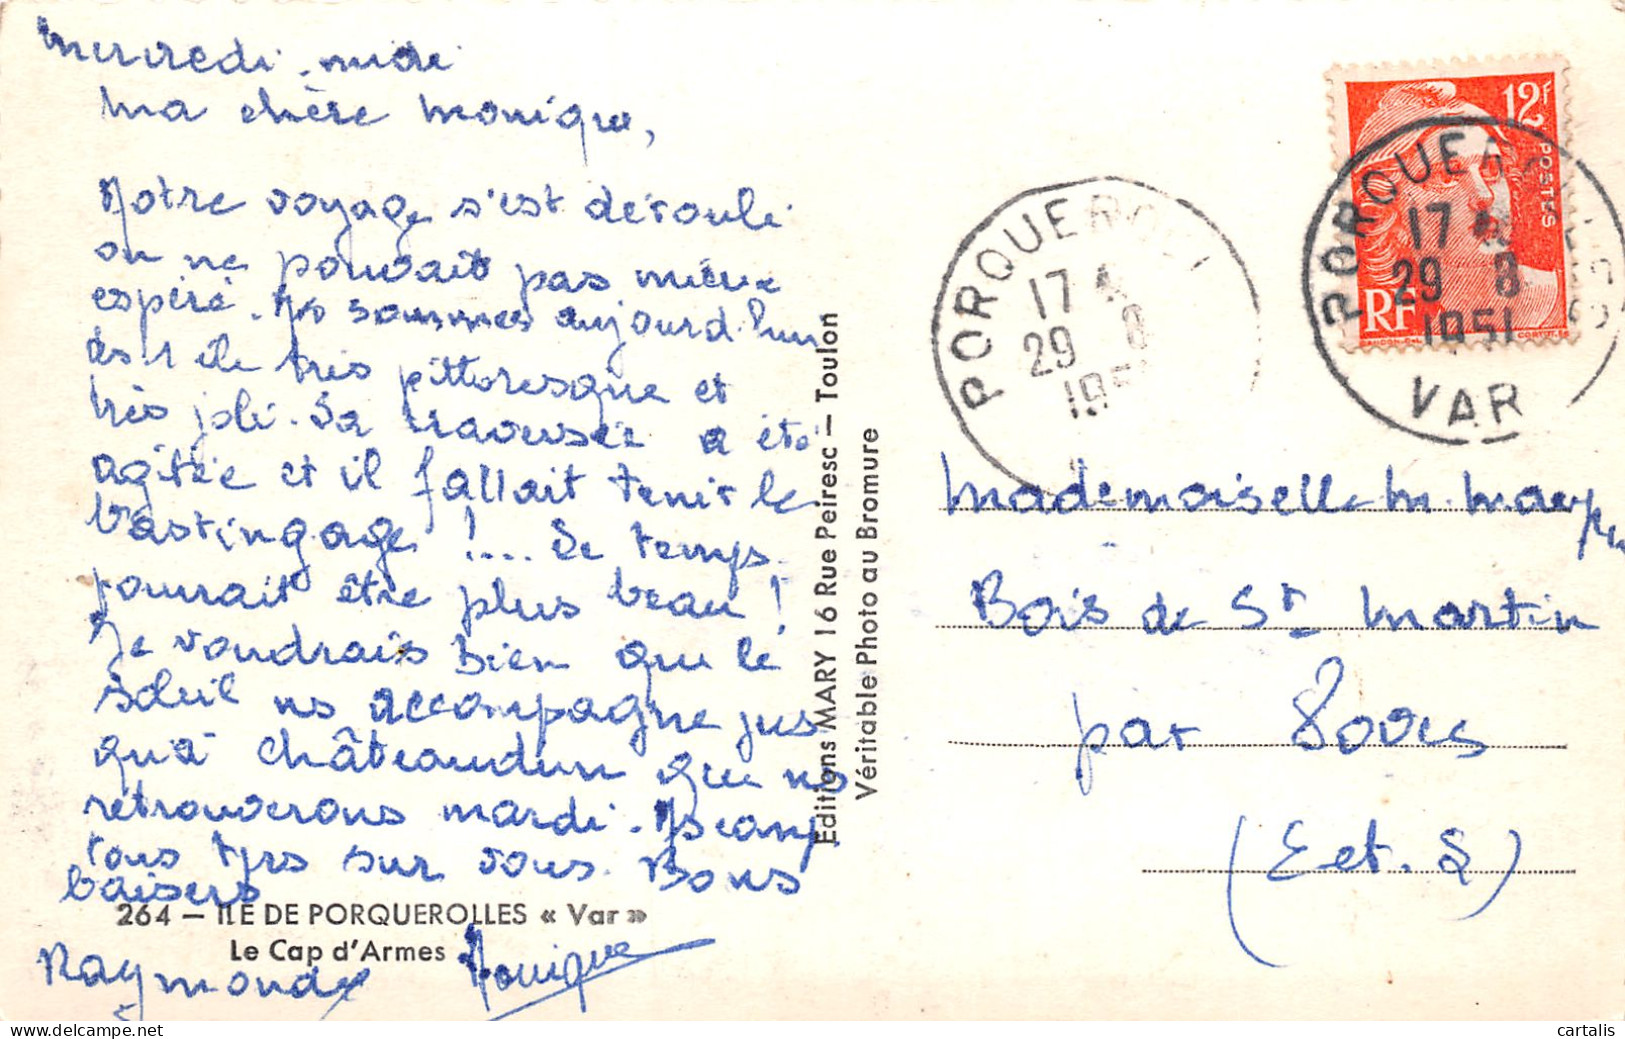 mercredi. midi
Ma chère Monique,
Notre voyage s'est déroulé
on ne pouvait pas mieux
espéré. Ns sommes aujourd'hui
ds l'île très pittoresque et
très jolie. La traversée a été
agitée et il fallait tenir le
bastingage !.... Le temps
pourrait être plus beau !
Je voudrais bien que le
soleil ns accompagne jus
qu'à Châteaudun que ns
retrouverons mardi. Ns comp
tons tjrs sur vous. Bons
baisers
264 — ILE DE PORQUEROLLES « Var »
Le Cap d'Armes
Raymonde Monique
Editions MARY 16 Rue Peiresc — Toulon
Véritable Photo au Bromure
PORQUEROLLES
17
29 8
195
12F
POSTES
RF
GANDON-DEL.
CORTOT.SC
PORQUEROLLES
17
29 8
1951
VAR
Mademoiselle M.
Bois de St Martin
par
(E et. L)
cartalis